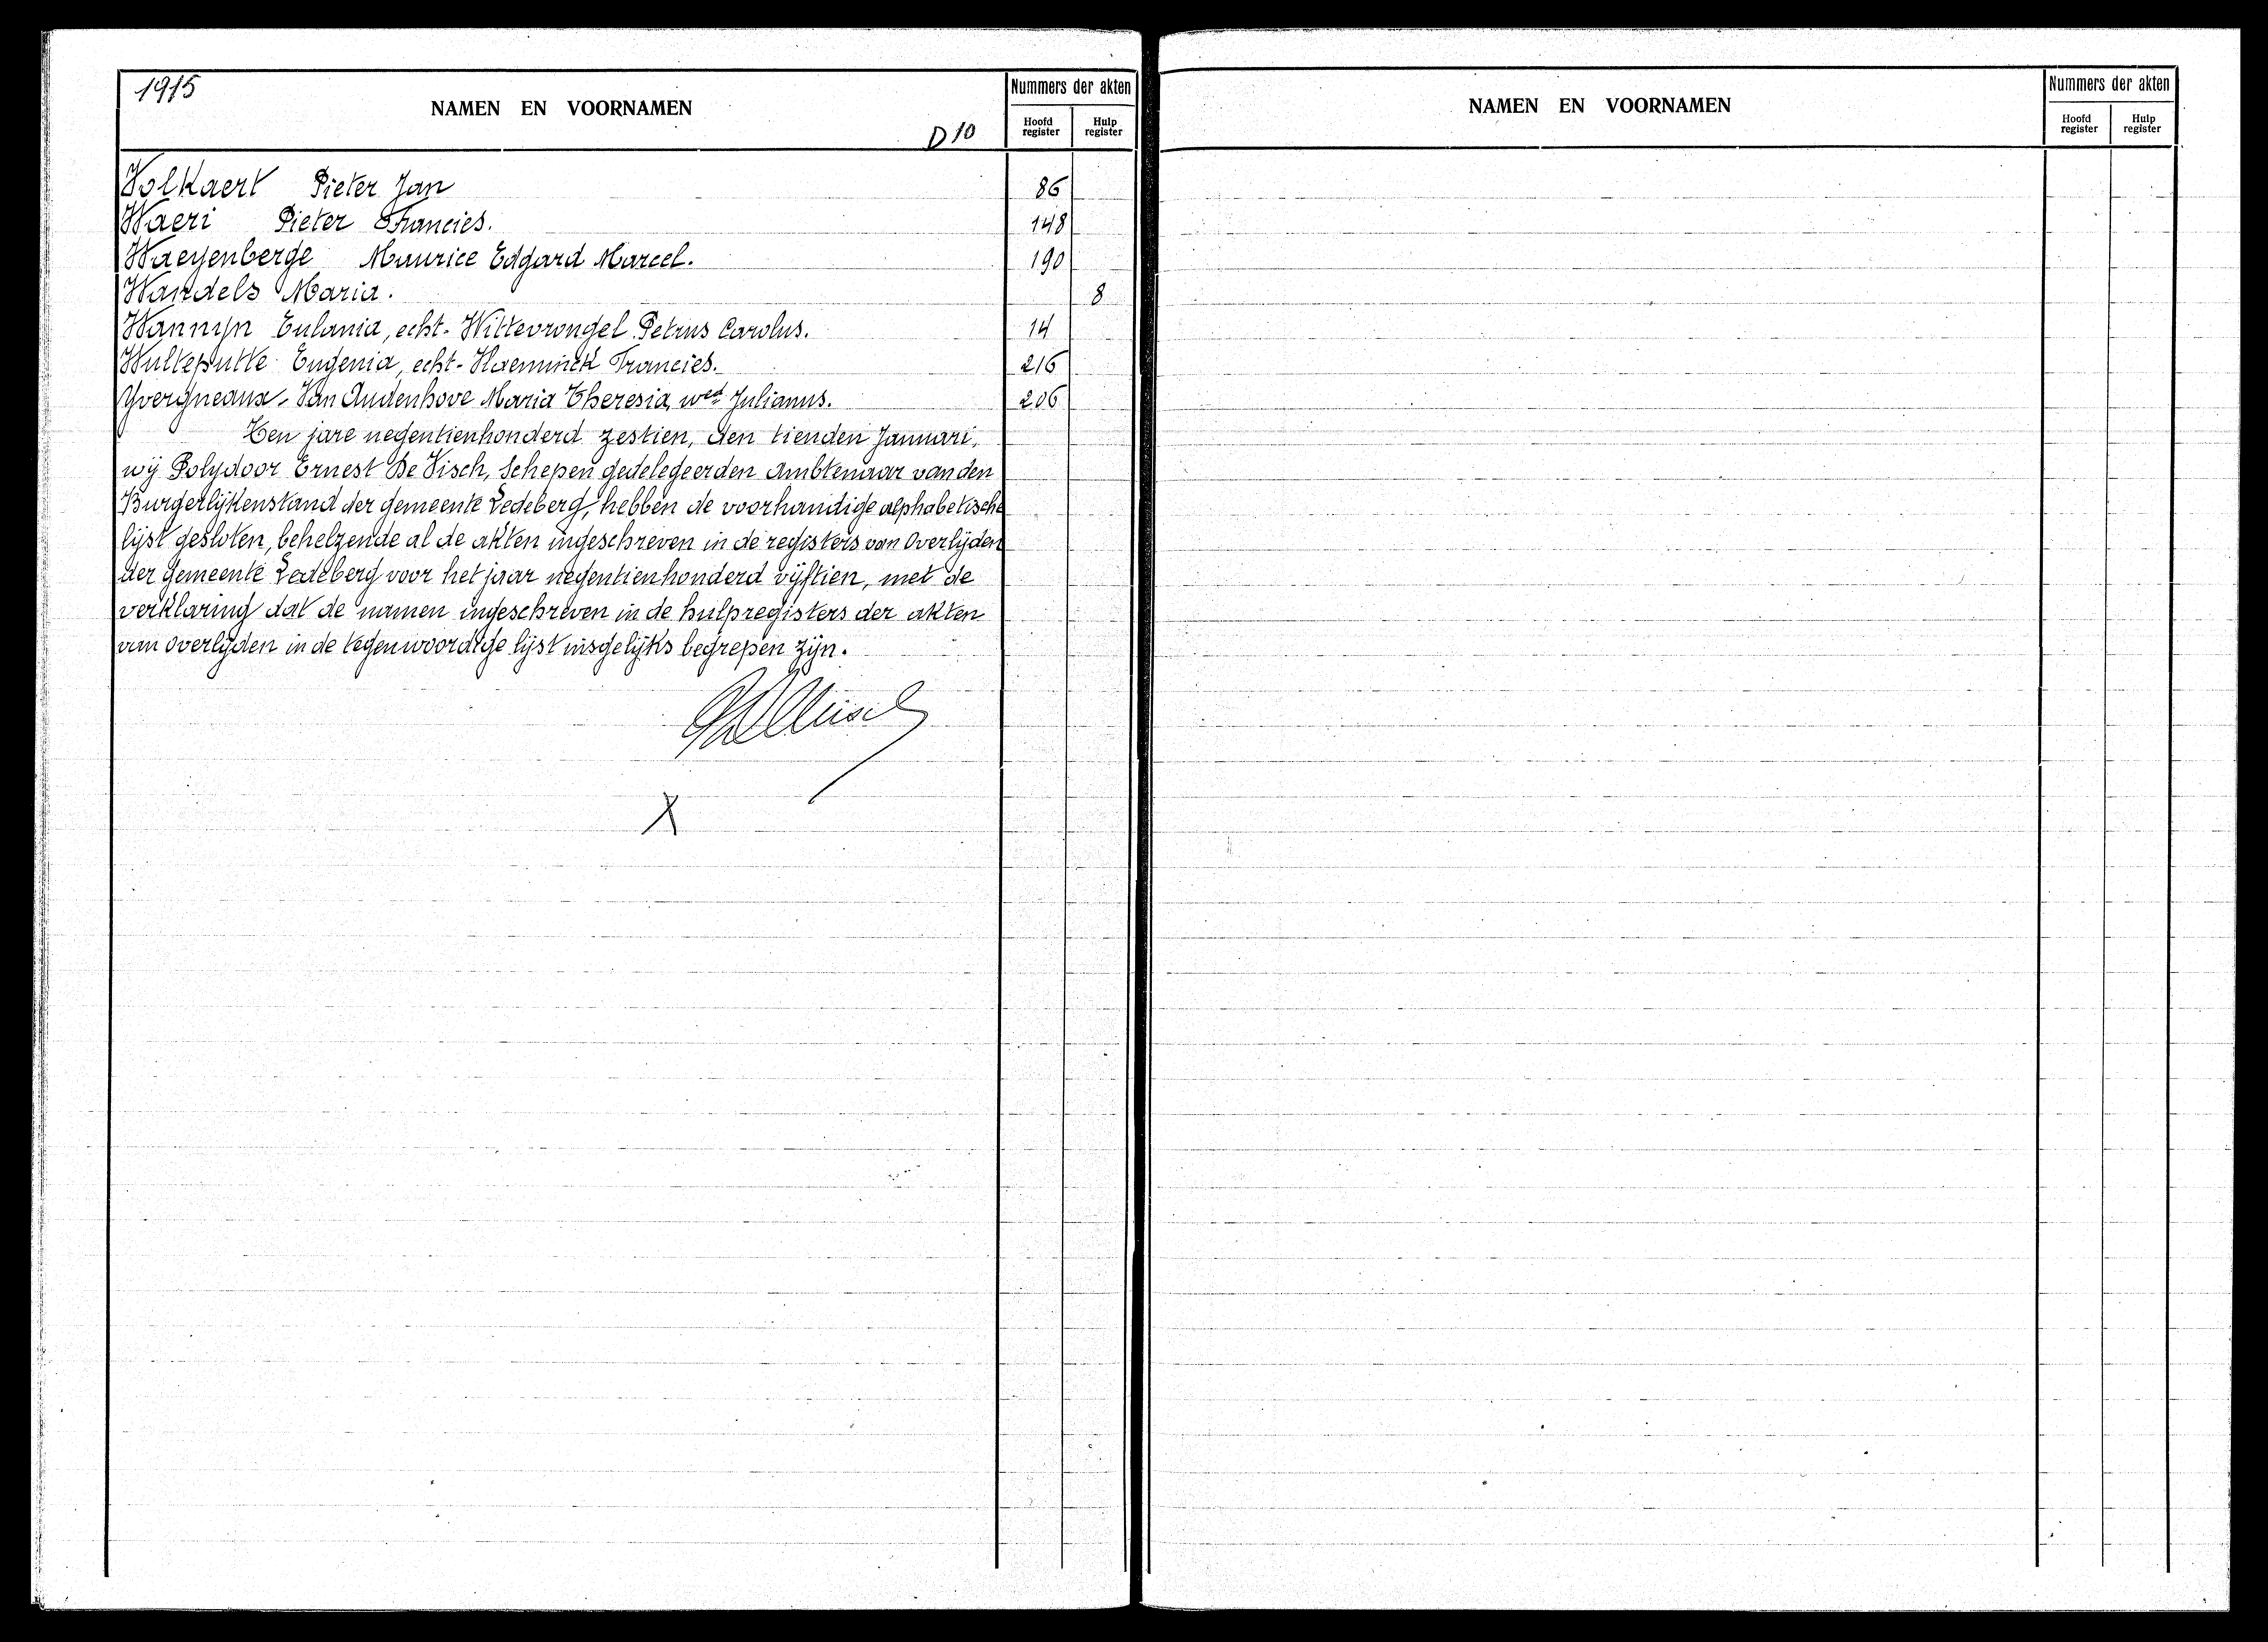 1915
NAMEN EN VOORNAMEN
D 10
Nummers der akten
Hoofd register
Hulp register
Volkaert Pieter Jan 86
Waeri Pieter Francies. 148
Waeyenberge Maurice Edgard Marcel. 190
Wandels Maria. 8
Wannijn Eulania, echt. Wittevrongel Petrus Carolus. 14
Wulteputte Eugenia, echt. Haeminck Francies. 216
Yvergneaux - Van Audenhove Maria Theresia, wed Julianus. 206
Ten jare negentienhonderd zestien, den tienden Januari,
wij Polydoor Ernest De Visch, Schepen gedelegeerden Ambtenaar van den
Burgerlijkenstand der gemeente Ledeberg, hebben de voorhandige alphabetische
lijst gesloten, behelzende al de akten ingeschreven in de registers van Overlijden
der gemeente Ledeberg voor het jaar negentienhonderd vijftien, met de
verklaring dat de namen ingeschreven in de hulpregisters der akten
van overlijden in de tegenwoordige lijst insgelijks begrepen zijn.
X
NAMEN EN VOORNAMEN
Nummers der akten
Hoofd register
Hulp register